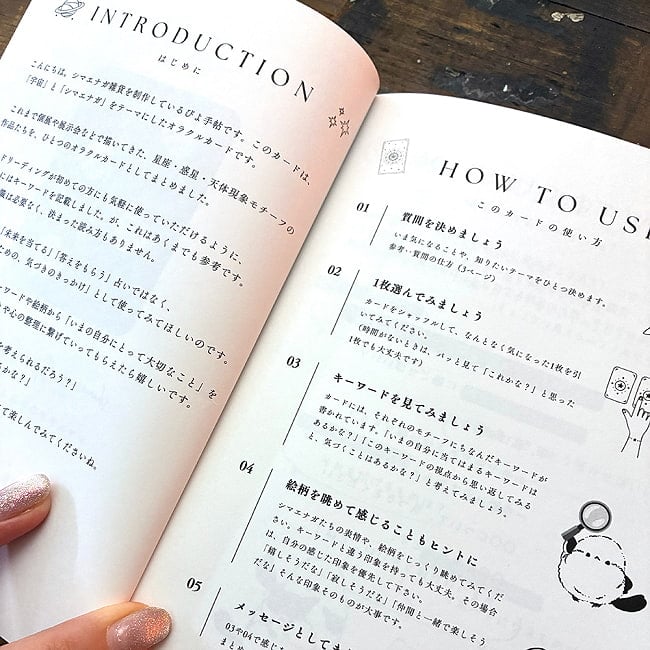 INTRODUCTION
はじめに
こんにちは。シマエナガ雑貨を制作しているぴよ手帖です。このカードは、
「宇宙」と「シマエナガ」をテーマにしたオラクルカードです。
これまで個展や展示会などで描いてきた、星座・惑星・天体現象モチーフの
作品たちを、ひとつのオラクルカードとしてまとめました。
ドリーディングが初めての方にも気軽に使っていただけるように、
にはキーワードを記載しました。が、これはあくまでも参考です。
識は必要なく、決まった読み方もありません。
「未来を当てる」「答えをもらう」占いではなく、
ための、気づきのきっかけ」として使ってみてほしいのです。
ワードや絵柄から「いまの自分にとって大切なこと」を
や心の整理に繋げていってもらえたら嬉しいです。
を考えられるだろう？」
るかな？」
て楽しんでみてくださいね。
HOW TO USE
このカードの使い方
01
質問を決めましょう
いま気になることや、知りたいテーマをひとつ決めます。
参考：質問の仕方（3ページ）
02
1枚選んでみましょう
カードをシャッフルして、なんとなく気になった1枚を引
いてみてください。
（時間がないときは、パッと見て「これかな？」と思った
1枚でも大丈夫です）
03
キーワードを見てみましょう
カードには、それぞれのモチーフにちなんだキーワードが
書かれています。「いまの自分に当てはまるキーワードは
あるかな？」「このキーワードの視点から思い返してみる
と、気づくことはあるかな？」と考えてみましょう。
04
絵柄を眺めて感じることもヒントに
シマエナガたちの表情や、絵柄をじっくり眺めてみてくだ
さい。キーワードと違う印象を持っても大丈夫。その場合
は、自分の感じた印象を優先して下さい。
「嬉しそうだな」「寂しそうだな」「仲間と一緒で楽しそう
だな」そんな印象そのものが大事です。
05
メッセージとしてま
03や04で感じた
まとめ